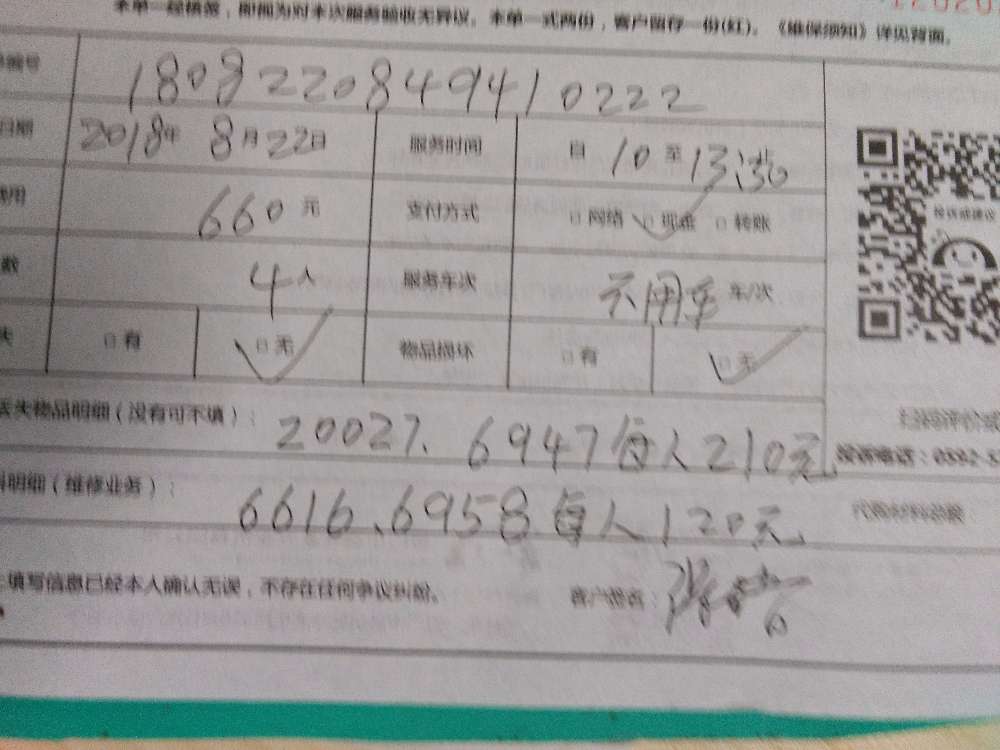 本单一经填签，即视为对本次服务验收无异议。本单一式两份，客户留存一份(红)。《维保须知》详见背面。
编号 180822084941 0222
日期 2018年 8月22日 服务时间 自 10 至 13:30
费用 660 元 支付方式 □ 网络 □ 现金 □ 转账
数 4 人 服务车次 不用车 车/次
失 □ 有 □ 无 物品损坏 □ 有 □ 无
投诉或建议
丢失物品明细（没有可不填）： 20027、6947每人210元
扫码评价或
投诉电话：0592-5
料明细（维修业务）： 6616、6958每人120元
代购材料总额
填写信息已经本人确认无误，不存在任何争议纠纷。 客户签名：